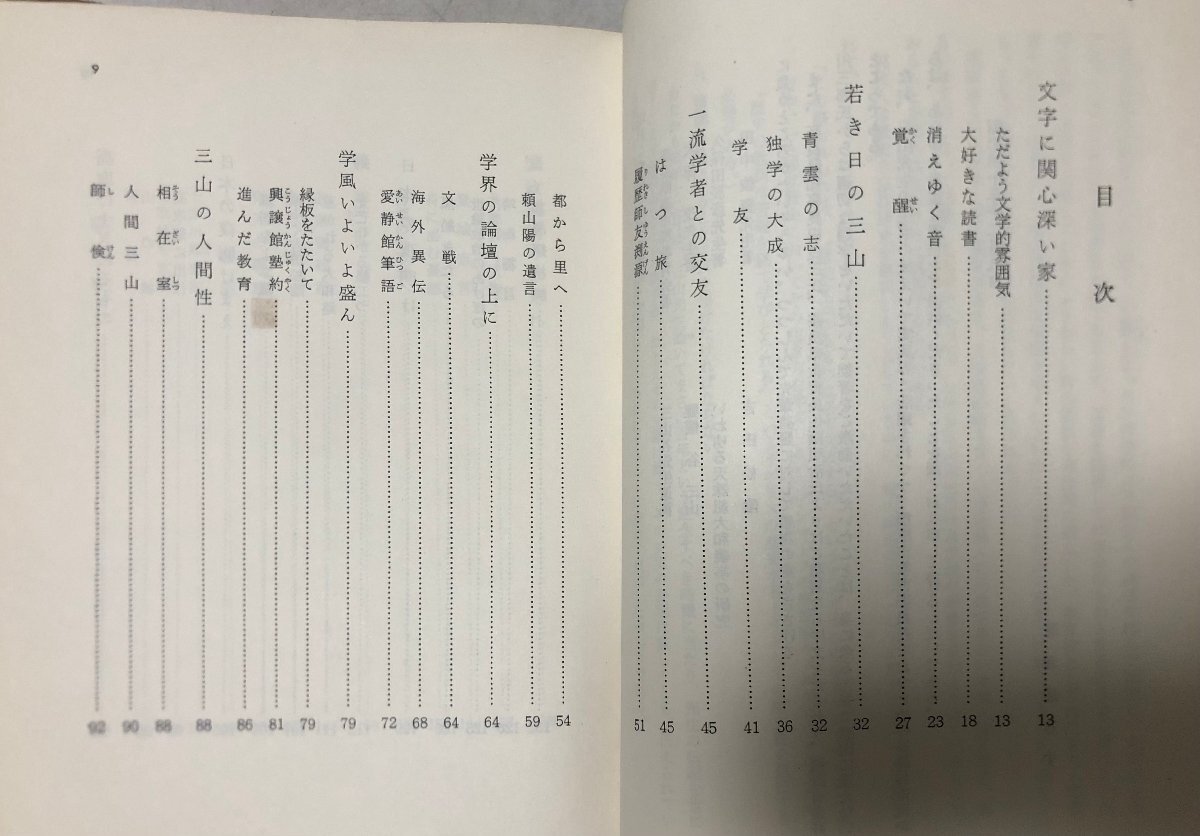 目次
文字に関心深い家……13
ただよう文学的雰囲気……13
大好きな読書……18
消えゆく音……23
覚醒……27
若き日の三山……32
青雲の志……32
独学の大成……36
学友……41
一流学者との交友……45
はつ旅……45
履歴師友淵源……51
都から里へ……54
頼山陽の遺言……59
学界の論壇の上に……64
文戦……64
海外異伝……68
愛静館筆語……72
学風いよいよ盛ん……79
縁板をたたいて……79
興譲館塾約……81
進んだ教育……86
三山の人間性……88
相在室……88
人間三山……90
師倹……92
9